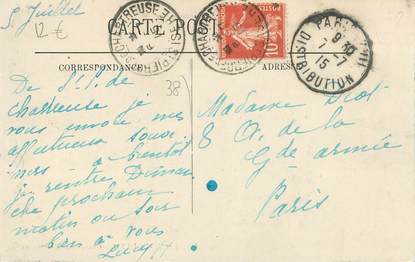 5 Juillet
12€
CARTE POSTALE
CORRESPONDANCE
ADRESSE
38
De St. P. de
Chartreuse je
vous envoie mes
affectueux souve
nirs – à bientôt
je rentre Diman
che prochain
matin ou soir
bien à vous
Lucy
Madame Diot
8 A. de la
Gde armée
Paris
10
PARIS
9 30
7 - 7
15
DISTRIBUTION